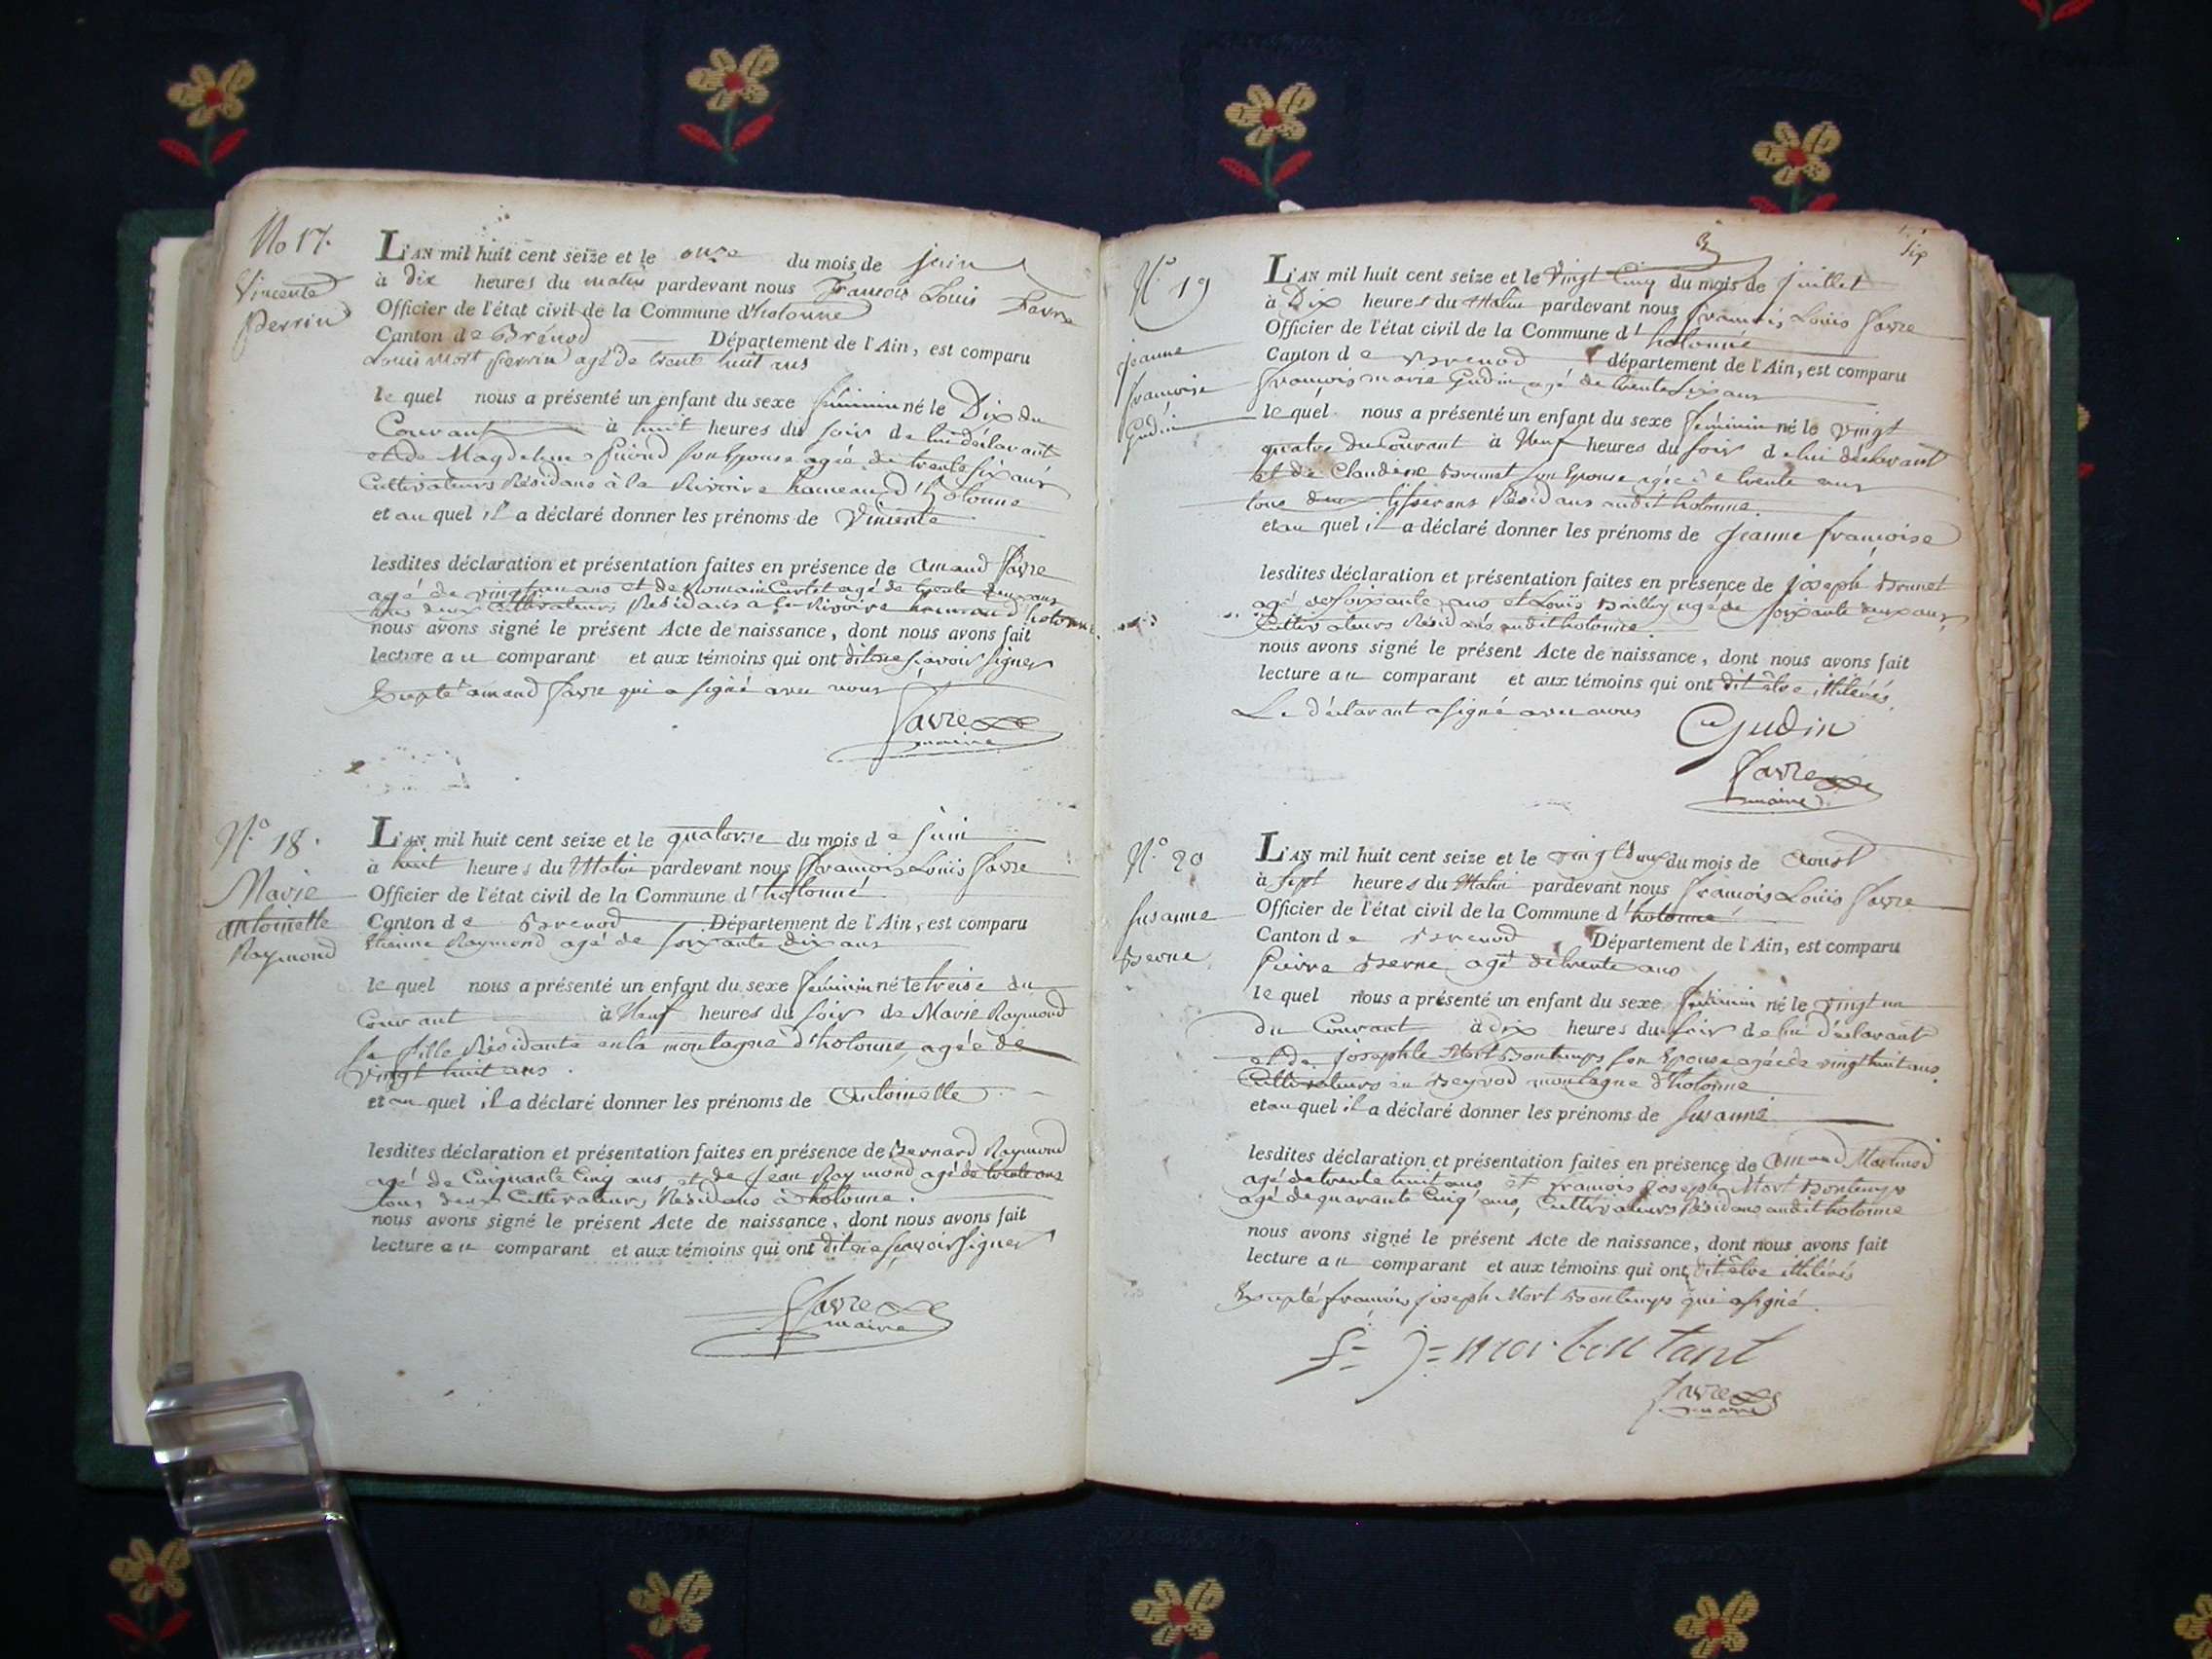 No 17.
Vincente
Perrin
L'AN mil huit cent seize et le onze du mois de juin
à Dix heures du matin pardevant nous François Louis Favre
Officier de l'état civil de la Commune d'holonne
Canton de Brénod Département de l'Ain, est comparu
Louis Mort Perrin agé de trente huit ans
le quel nous a présenté un enfant du sexe féminin né le Dix du
Courant à huit heures du soir de lui déclarant
et de Magdelene son Epouse agée de trente six ans
Cultivateurs Résidans à la Rivoire hameau d'holonne
et au quel il a déclaré donner les prénoms de Vincente
lesdites déclaration et présentation faites en présence de Amand Favre
agé de vingt un ans et de Romain Curlet agé de trente deux ans
tous deux Cultivateurs Résidans a la Rivoire hameau d'holonne.
nous avons signé le présent Acte de naissance, dont nous avons fait
lecture au comparant et aux témoins qui ont dit ne sçavoir signer
Excepté amand Favre qui a signé avec nous
Favre
maire
N.º 18.
Marie
antoinette
Raymond
L'AN mil huit cent seize et le quatorze du mois de juin
à huit heures du Matin pardevant nous François Louis Favre
Officier de l'état civil de la Commune d'holonne
Canton de Brenod Département de l'Ain, est comparu
Etienne Raymond agé de soixante dix ans
le quel nous a présenté un enfant du sexe féminin né le treise du
Courant à Neuf heures du soir de Marie Raymond
sa fille Résidante en la montagne d'holonne, agée de
vingt huit ans.
et au quel il a déclaré donner les prénoms de Antoinette
lesdites déclaration et présentation faites en présence de Bernard Raymond
agé de Cinquante Cinq ans et de Jean Raymond agé de trente ans
tous deux Cultivateurs Résidans à holonne.
nous avons signé le présent Acte de naissance, dont nous avons fait
lecture au comparant et aux témoins qui ont dit ne sçavoir signer
Favre
maire
six
N.º 19
jeanne
françoise
Gudin
L'AN mil huit cent seize et le Vingt Cinq du mois de juillet
à Dix heures du Matin pardevant nous François Louis Favre
Officier de l'état civil de la Commune d'holonne
Canton de Brenod département de l'Ain, est comparu
François marie Gudin agé de trente six ans
le quel nous a présenté un enfant du sexe féminin né le vingt
quatre du Courant à Neuf heures du soir de lui déclarant
et de Claudine Brunet son Epouse agée de trente ans
tous deux tisserans Résidans audit holonne.
et au quel il a déclaré donner les prénoms de Jeanne françoise
lesdites déclaration et présentation faites en présence de joseph Brunet
agé de soixante ans et Louis Brilley agé de soixante deux ans,
Cultivateurs Résidans audit holonne.
nous avons signé le présent Acte de naissance, dont nous avons fait
lecture au comparant et aux témoins qui ont dit être illiterés.
Le déclarant a signé avec nous
Gudin
Favre
maire
N.º 20
susanne
Berne
L'AN mil huit cent seize et le vingt deux du mois de Aoust
à sept heures du Matin pardevant nous François Louis Favre
Officier de l'état civil de la Commune d'holonne
Canton de Brenod Département de l'Ain, est comparu
Pierre Berne agé de trente ans
le quel nous a présenté un enfant du sexe féminin né le vingt un
du Courant à dix heures du soir de lui déclarant
et de josephte Mort Bontemps son Epouse agée de vingt huit ans.
Cultivateurs en Beyrod montagne d'holonne
et au quel il a déclaré donner les prénoms de susanne
lesdites déclaration et présentation faites en présence de Amand Martinod
agé de trente huit ans et françois joseph Mort Bontemps
agé de quarante Cinq ans, Cultivateurs Résidans audit holonne
nous avons signé le présent Acte de naissance, dont nous avons fait
lecture au comparant et aux témoins qui ont dit être illiterés
Excepté françois joseph Mort Bontemps qui a signé.
f = j = mor bontant
Favre
maire